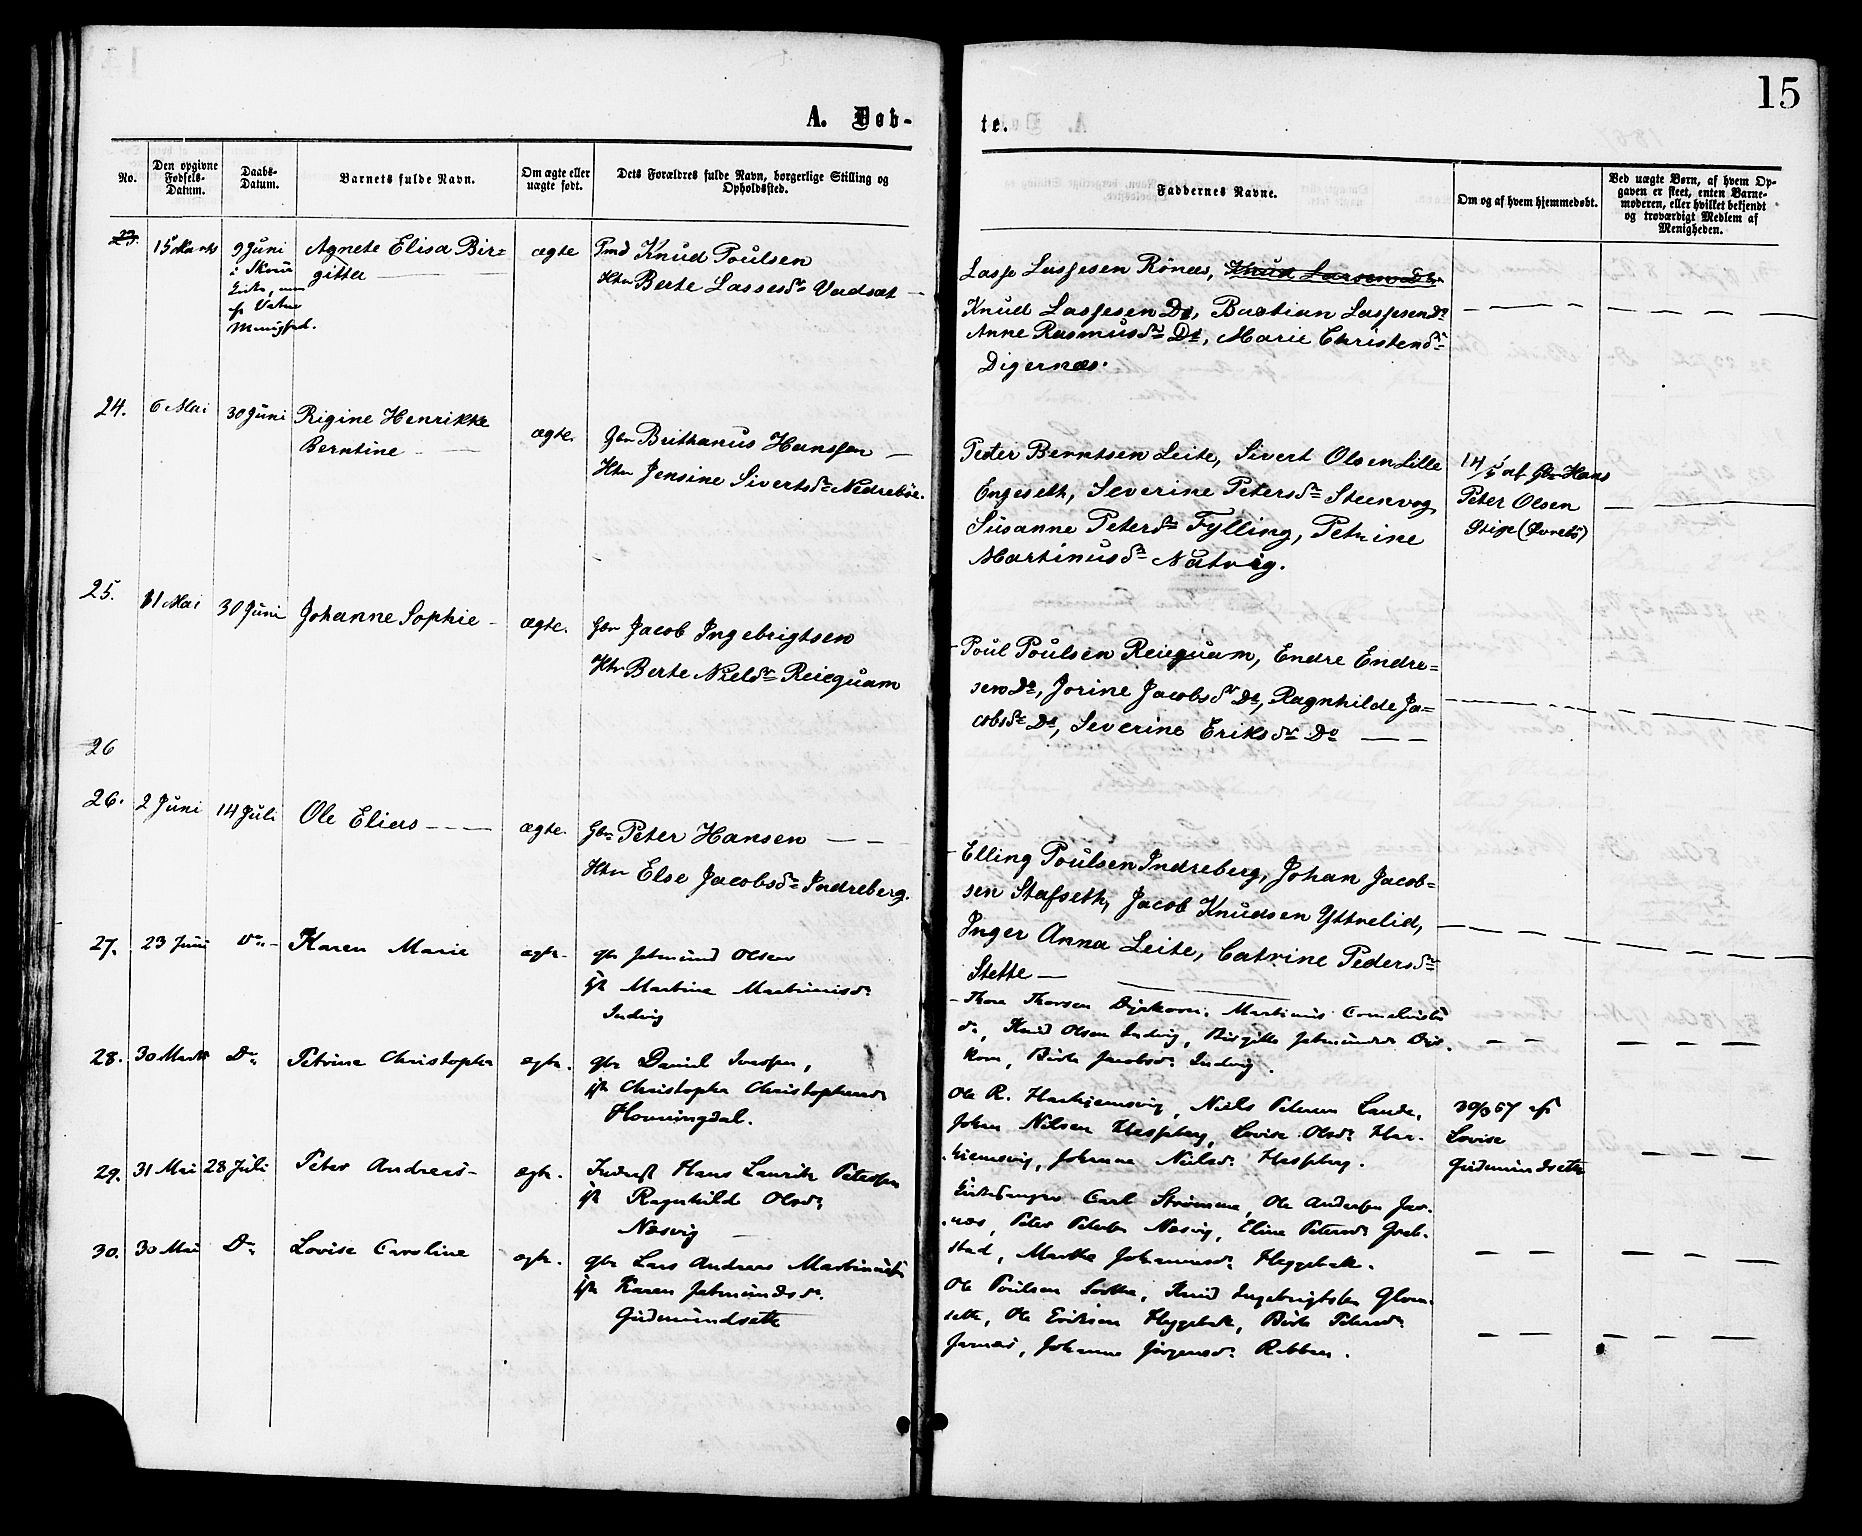 15
A. Døb-
te.
No.
Den opgivne Fødsels-Datum.
Daabs-Datum.
Barnets fulde Navn.
Om ægte eller uægte født.
Dets Forældres fulde Navn, borgerlige Stilling og Opholdssted.
Faddernes Navne.
Om og af hvem hjemmedøbt.
Ved uægte Børn, af hvem Opgaven er skeet, enten Barnemoderen, eller hvilket bekjendt og troværdigt Medlem af Menigheden.
23.
15 Marts
9 Juni
i Skoue
Menighed.
Agnete Elisa Bir=
gitta
ægte
Pmd Knud Poulsen
Htr Berte Lassesdr Vadsæt
Lasse Lassesen Rönæs, Knud Larsen
Knud Lassesen Do, Bastian Lassesen Do
Anne Rasmusdr Do, Marie Christensdr
Digernæs.
24.
6 Mai
30 Juni
Rigine Henrikke
Berntine
ægte.
Gbr Brithanus Hanssen
Htr Jensine Sivertsdr Nedrebøe.
Peder Berntsen Leite, Sivert Olsen Lille
Engeseth, Severine Petersdr Steenvog,
Susanne Petersdr Fylling, Petrine
Martinusdr Natvig.
14/5 af Gbr Hans
Peter Olsen
Stige (Øvrebö)
25.
11 Mai
30 Juni
Johanne Sophie
ægte.
Gbr Jacob Ingebrigtsen
Htr Berte Nielsdr Reiequam
Poul Poulsen Reiequam, Endre Endre=
sen Do, Jorine Jacobsdr Do, Ragnhilde Ja=
cobsdr Do, Severine Eriksdr Do
26
26.
2 Juni
14 Juli
Ole Eliers
ægte.
Gbr Peter Hansen
Htr Else Jacobsdr Indreberg.
Elling Poulsen Indreberg, Johan Jacob=
sen Stafseth, Jacob Knudsen Yttrelid,
Inger Anna Leite, Catrine Pedersdr
Stette
27.
23 Juni
Do
Karen Marie
ægte.
Gbr Jetmund Olsen
Martine Martinusdr
Indvig
Thore Thorsen Dyrkorn, Martinus Cornelius
dr, Knud Olsen Indvig, Birgitte Jetmundsdr Dyr
korn, Birte Jacobsdr Indvig.
28.
30 Marts
Do
Petrine Christophe
ægte.
Gbr Daniel Ivarsen,
Christophe Christophersdr
Hovningdal.
Ole R. Harkjemsvig, Niels Petersen Lande,
Johan Nilsen Hesseberg, Lovise Olsdr Har
kjemsvig, Johanne Nielsdr Hesseberg.
30/3 67 af
Lovise
Gudmundsette
29.
31 Mai
28 Juli
Peter Andreas
ægte.
Inderst Hans Laurits Petersen
Ragnhild Olsdr
Næsvig
Kirkesanger Carl Strømme, Ole Andersen Jar
næs, Peter Petersen Næsvig, Eline Petersdr Grebstad, Marthe Johannesdr Heggebak.
30.
30 Mai
Do
Lovise Caroline
ægte.
Gbr Lars Andreas Martinusen
Karen Jetmundsdr
Gudmundsette
Ole Poulsen Sorthe, Knud Ingebrigtsen Glom
sette, Ole Eriksen Heggebak, Birte Petersdr
Jarnæs, Johanne Jørgensdr Ribben.